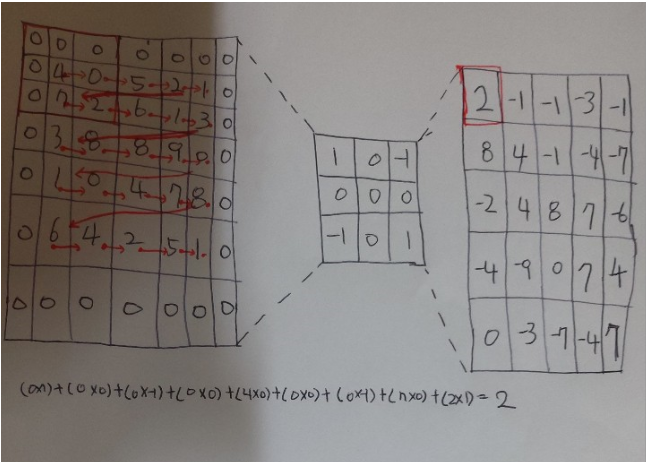 0 0 0 0 0 0 0
0 4 0 5 2 1 0
0 7 2 6 1 3 0
0 3 8 8 9 0 0
0 1 0 4 7 8 0
0 6 4 2 5 1 0
0 0 0 0 0 0 0
1 0 -1
0 0 0
-1 0 1
2 -1 -1 -3 -1
8 4 -1 -4 -7
-2 4 8 7 -6
-4 -9 0 7 4
0 -3 -7 -4 7
(0x1)+(0x0)+(0x-1)+(0x0)+(4x0)+(0x0)+(0x-1)+(7x0)+(2x1)=2